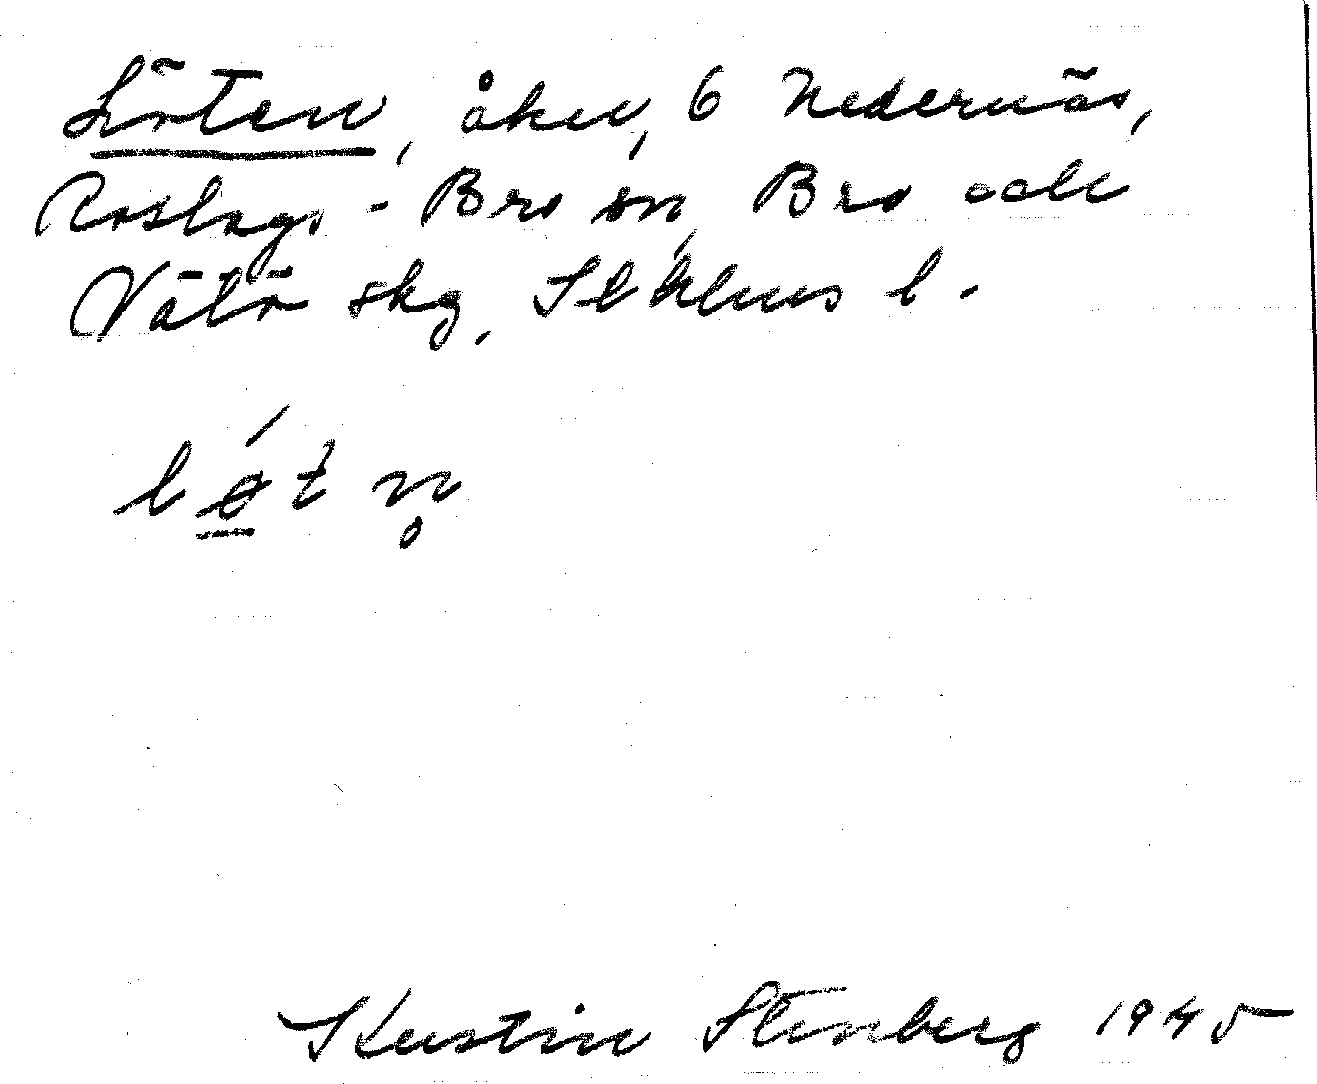 Löten, åker, 6 Nedernäs,
Roslags-Bro sn, Bro och
Vätö skg, Sthlms l.
løt n̥
Kerstin Stenberg 1945